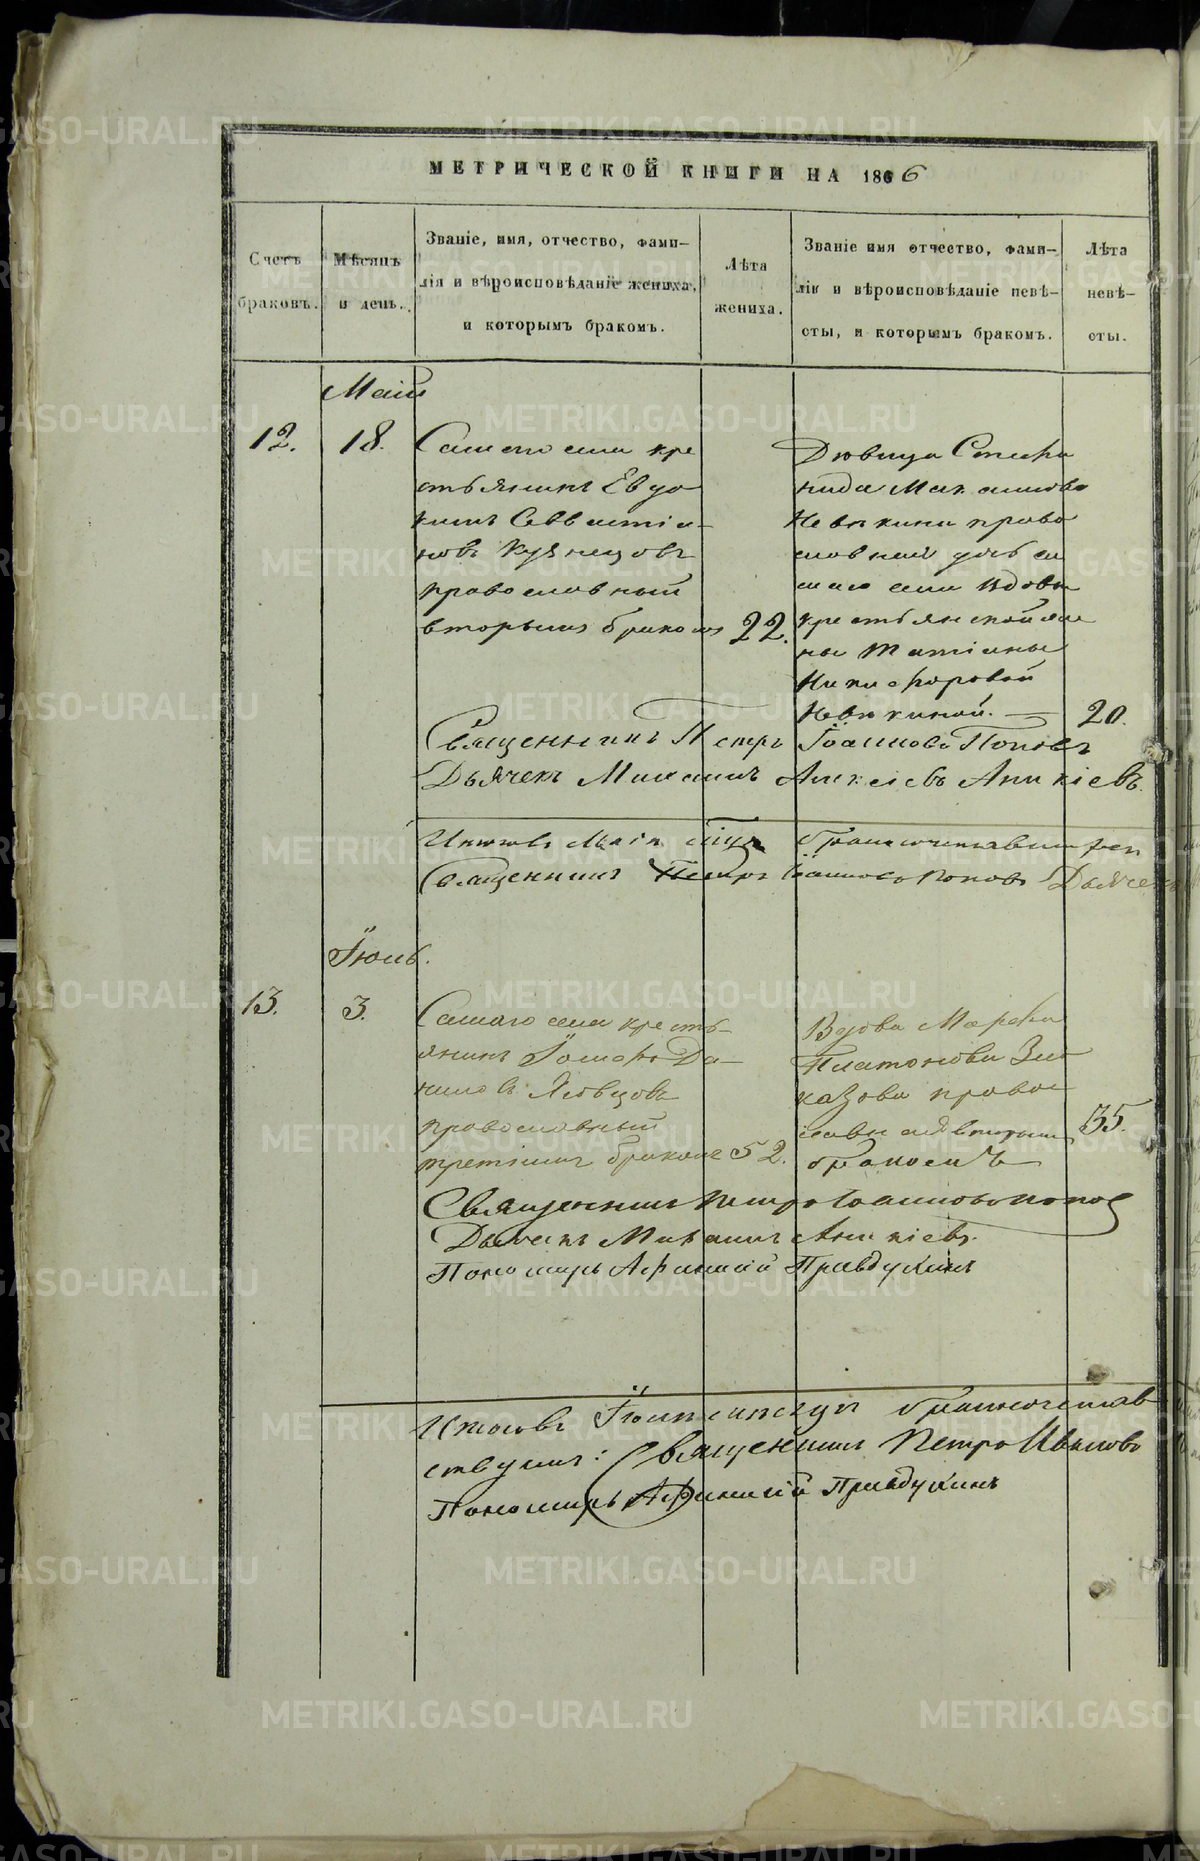 МЕТРИЧЕСКОЙ КНИГИ НА 1866
Счетъ браковъ.
Мѣсяцъ и день.
Званіе, имя, отчество, фами-
лія и вѣроисповѣданіе жениха,
и которымъ бракомъ.
Лѣта
жениха.
Званіе имя отчество, фами-
лія и вѣроисповѣданіе невѣ-
сты, и которымъ бракомъ.
Лѣта
невѣ-
сты.
Май
12.
18.
Самаго села кре
стьянинъ Евдо
кимъ Севастiа-
новъ Кузнецовъ
православный
вторымъ бракомъ
22.
Дѣвица Стефа
нида Максимова
Невѣкина право
славная дочь са
маго села вдовы
крестьянской же
ны Татіаны
Никифоровой
Невѣкиной.
20.
Священникъ Петръ Іоанновъ Поповъ
Дьячекъ Михаилъ Алексіевъ Аникіевъ.
Итого въ Маіи
Священникъ Петръ Іоанновъ Поповъ Дьячекъ
Іюль.
13.
3.
Самаго села кресть-
янинъ Іосифъ Да-
ниловъ
православный
третіимъ бракомъ
52.
Вдова Марфа
Платонова
казова право
славная вторымъ
бракомъ
35.
Священникъ Петръ Іоанновъ Попов
Дьячекъ Михаилъ Аникіевъ.
Пономарь Афанасій Правдухинъ
Итого въ Іюлѣ мѣсяцѣ бракосочетав
Священникъ Петръ Иванов
Пономарь Афанасій Правдухинъ
METRIKI.GASO-URAL.RU